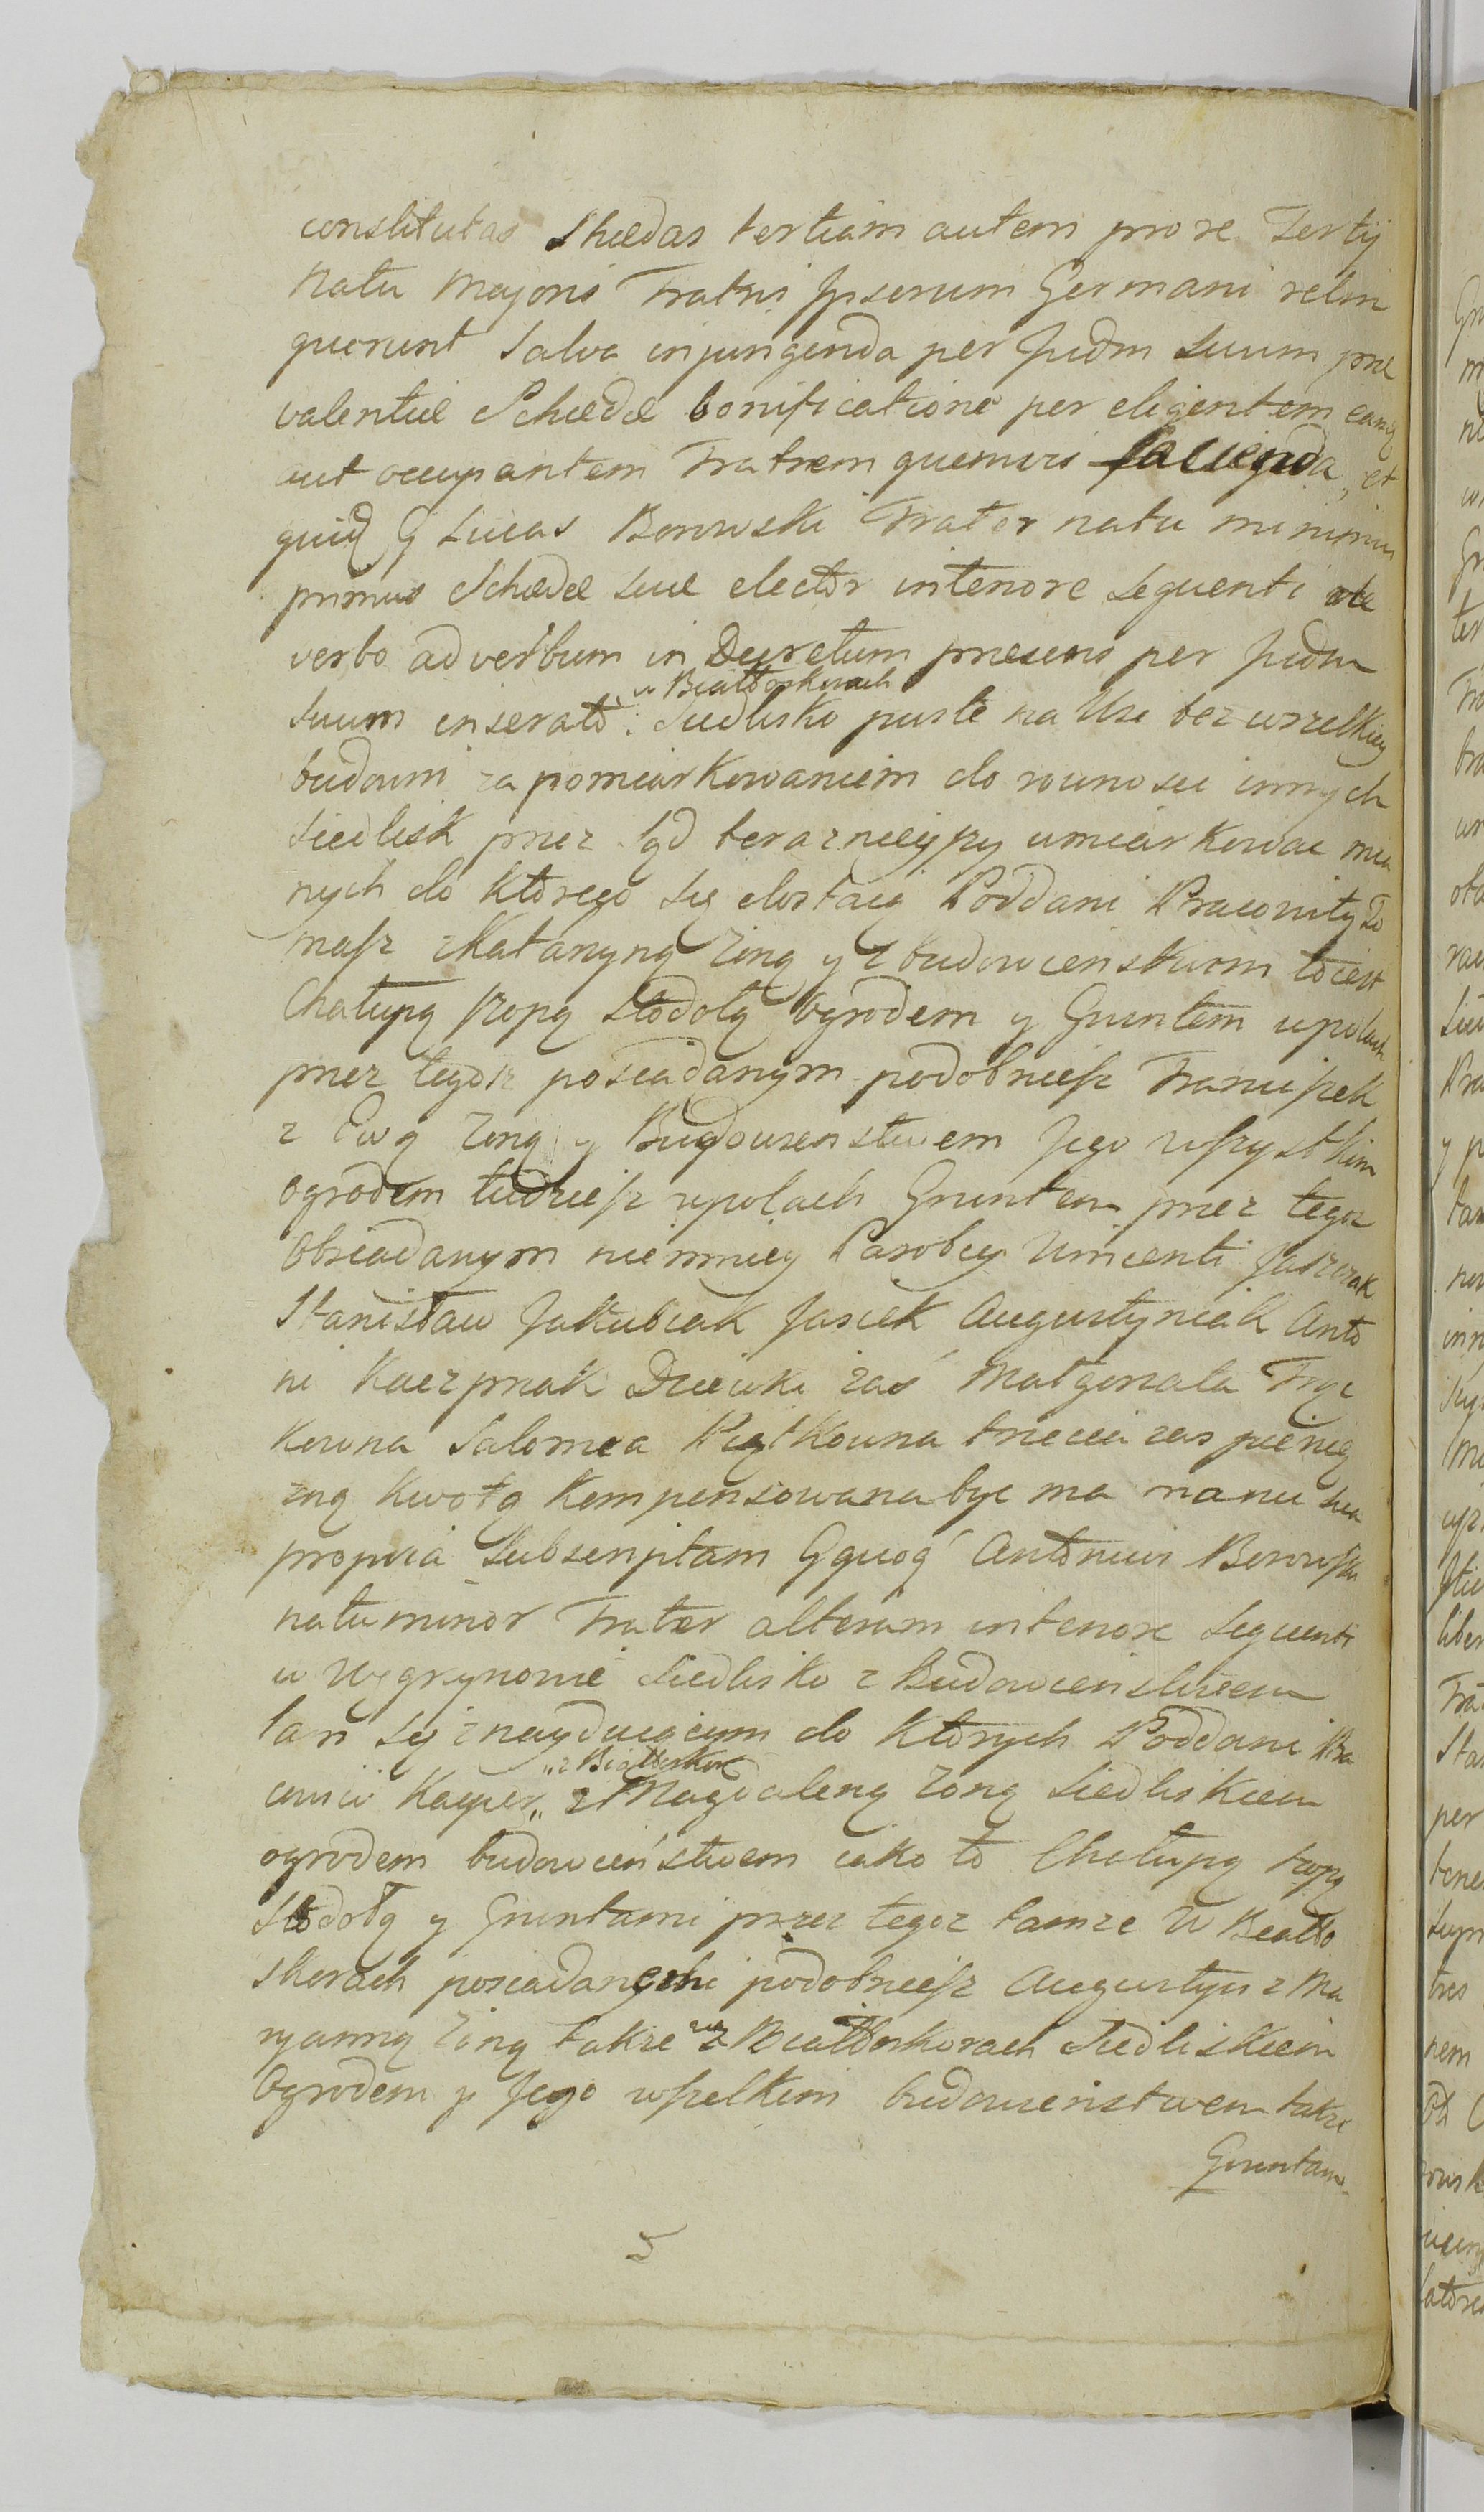 constitutas Shedas tertiam autem pro re Tertij
Natu Majoris Fratris Ipsorum Germani relin
querunt Salva injungenda per Judm Suum prae
valentiae Schedae bonificatione per eligentem eamq
aut occupantem Fratrem quemvis facienda, et
quid G Lucas Borowski Frater natu minimus
primus Schedae suae elector intenore sequenti de
verbo ad verbum in Decretum praesens per Judm
w Białboskorach
Suum inserato: Siedlisko puste na Wsi bez wszelkiey
budowni za pomiarkowaniem do rownosci innych
Siedlisk przez Sąd teraznieyszy umiarkować mia
nych do ktorego się dostaią Poddani Pracowity To
masz z Katarzyną Zoną y z budowcenstwem to iest
Chałupą szopą Stodołą Ogrodem y Gruntem w polach
przez tegosz posiadanym podobniesz Franciszek
z Ewą Zoną y Budowcenstwem Jego wszystkim
Ogrodem tudziesz w polach Gruntem przez tegoz
Obsiadanym niemniey Parobcy Wincenti Jaszczak
Stanisław Jakubiak Jasiek Augustyniak Anto
ni Kaczprzak Dziewki zaś Małgorzata Frąc
kowna Salomea Piątkowna trzecia zas pienię
zną kwotą kompensowana być ma manu sua
propria Subscriptam G quoq Antonius Borowski
natu minor Frater alteram intenore sequenti
w Węgrzynowie Siedlisko z Budowcenstwem
tam się znayduiącym do ktorych Poddani Pra
„z Białboskor
cowici Kacper „ z Magdaleną Zoną Siedliskiem
ogrodem budowceństwem iako to Chałupą szopą
Stodołą y Gruntami przez tegoz tamze w Białbo
skorach posiadanychi podobniesz Augustyn z Ma
ryanną Zoną takze w Białboskorach Siedliskiem
Ogrodem y Jego wszelkim budowcenstwem takze
Gruntam
5